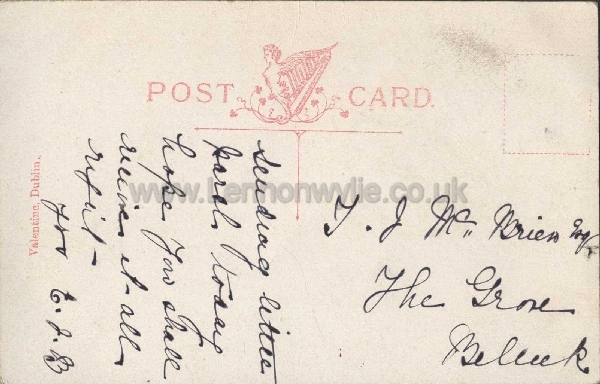 POST CARD.
Valentine, Dublin.
sending little
parcel today
hope you shall
receive it all
right -
E. J. B
T. J Mc Brien Esq
The Grove
Belleek
www.lennonwylie.co.uk